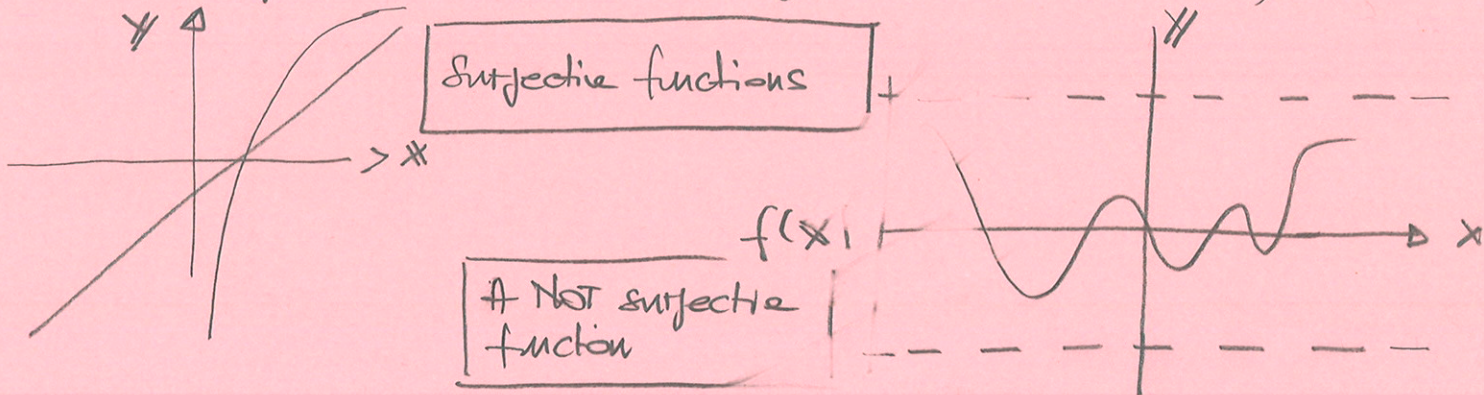 y
Surjective functions
y
x
f(x)
x
A NOT surjective
function